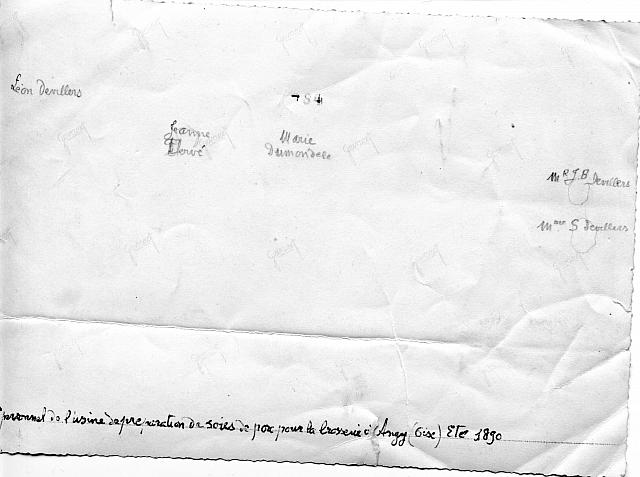 Léon Devillers
784
Jeanne
Hervé
Marie
Dumondele
Mr J.B Devillers
Mme S Devillers
personnel de l'usine de preparation de soies de porc pour la brosserie à Angy (Oise) Eté 1890